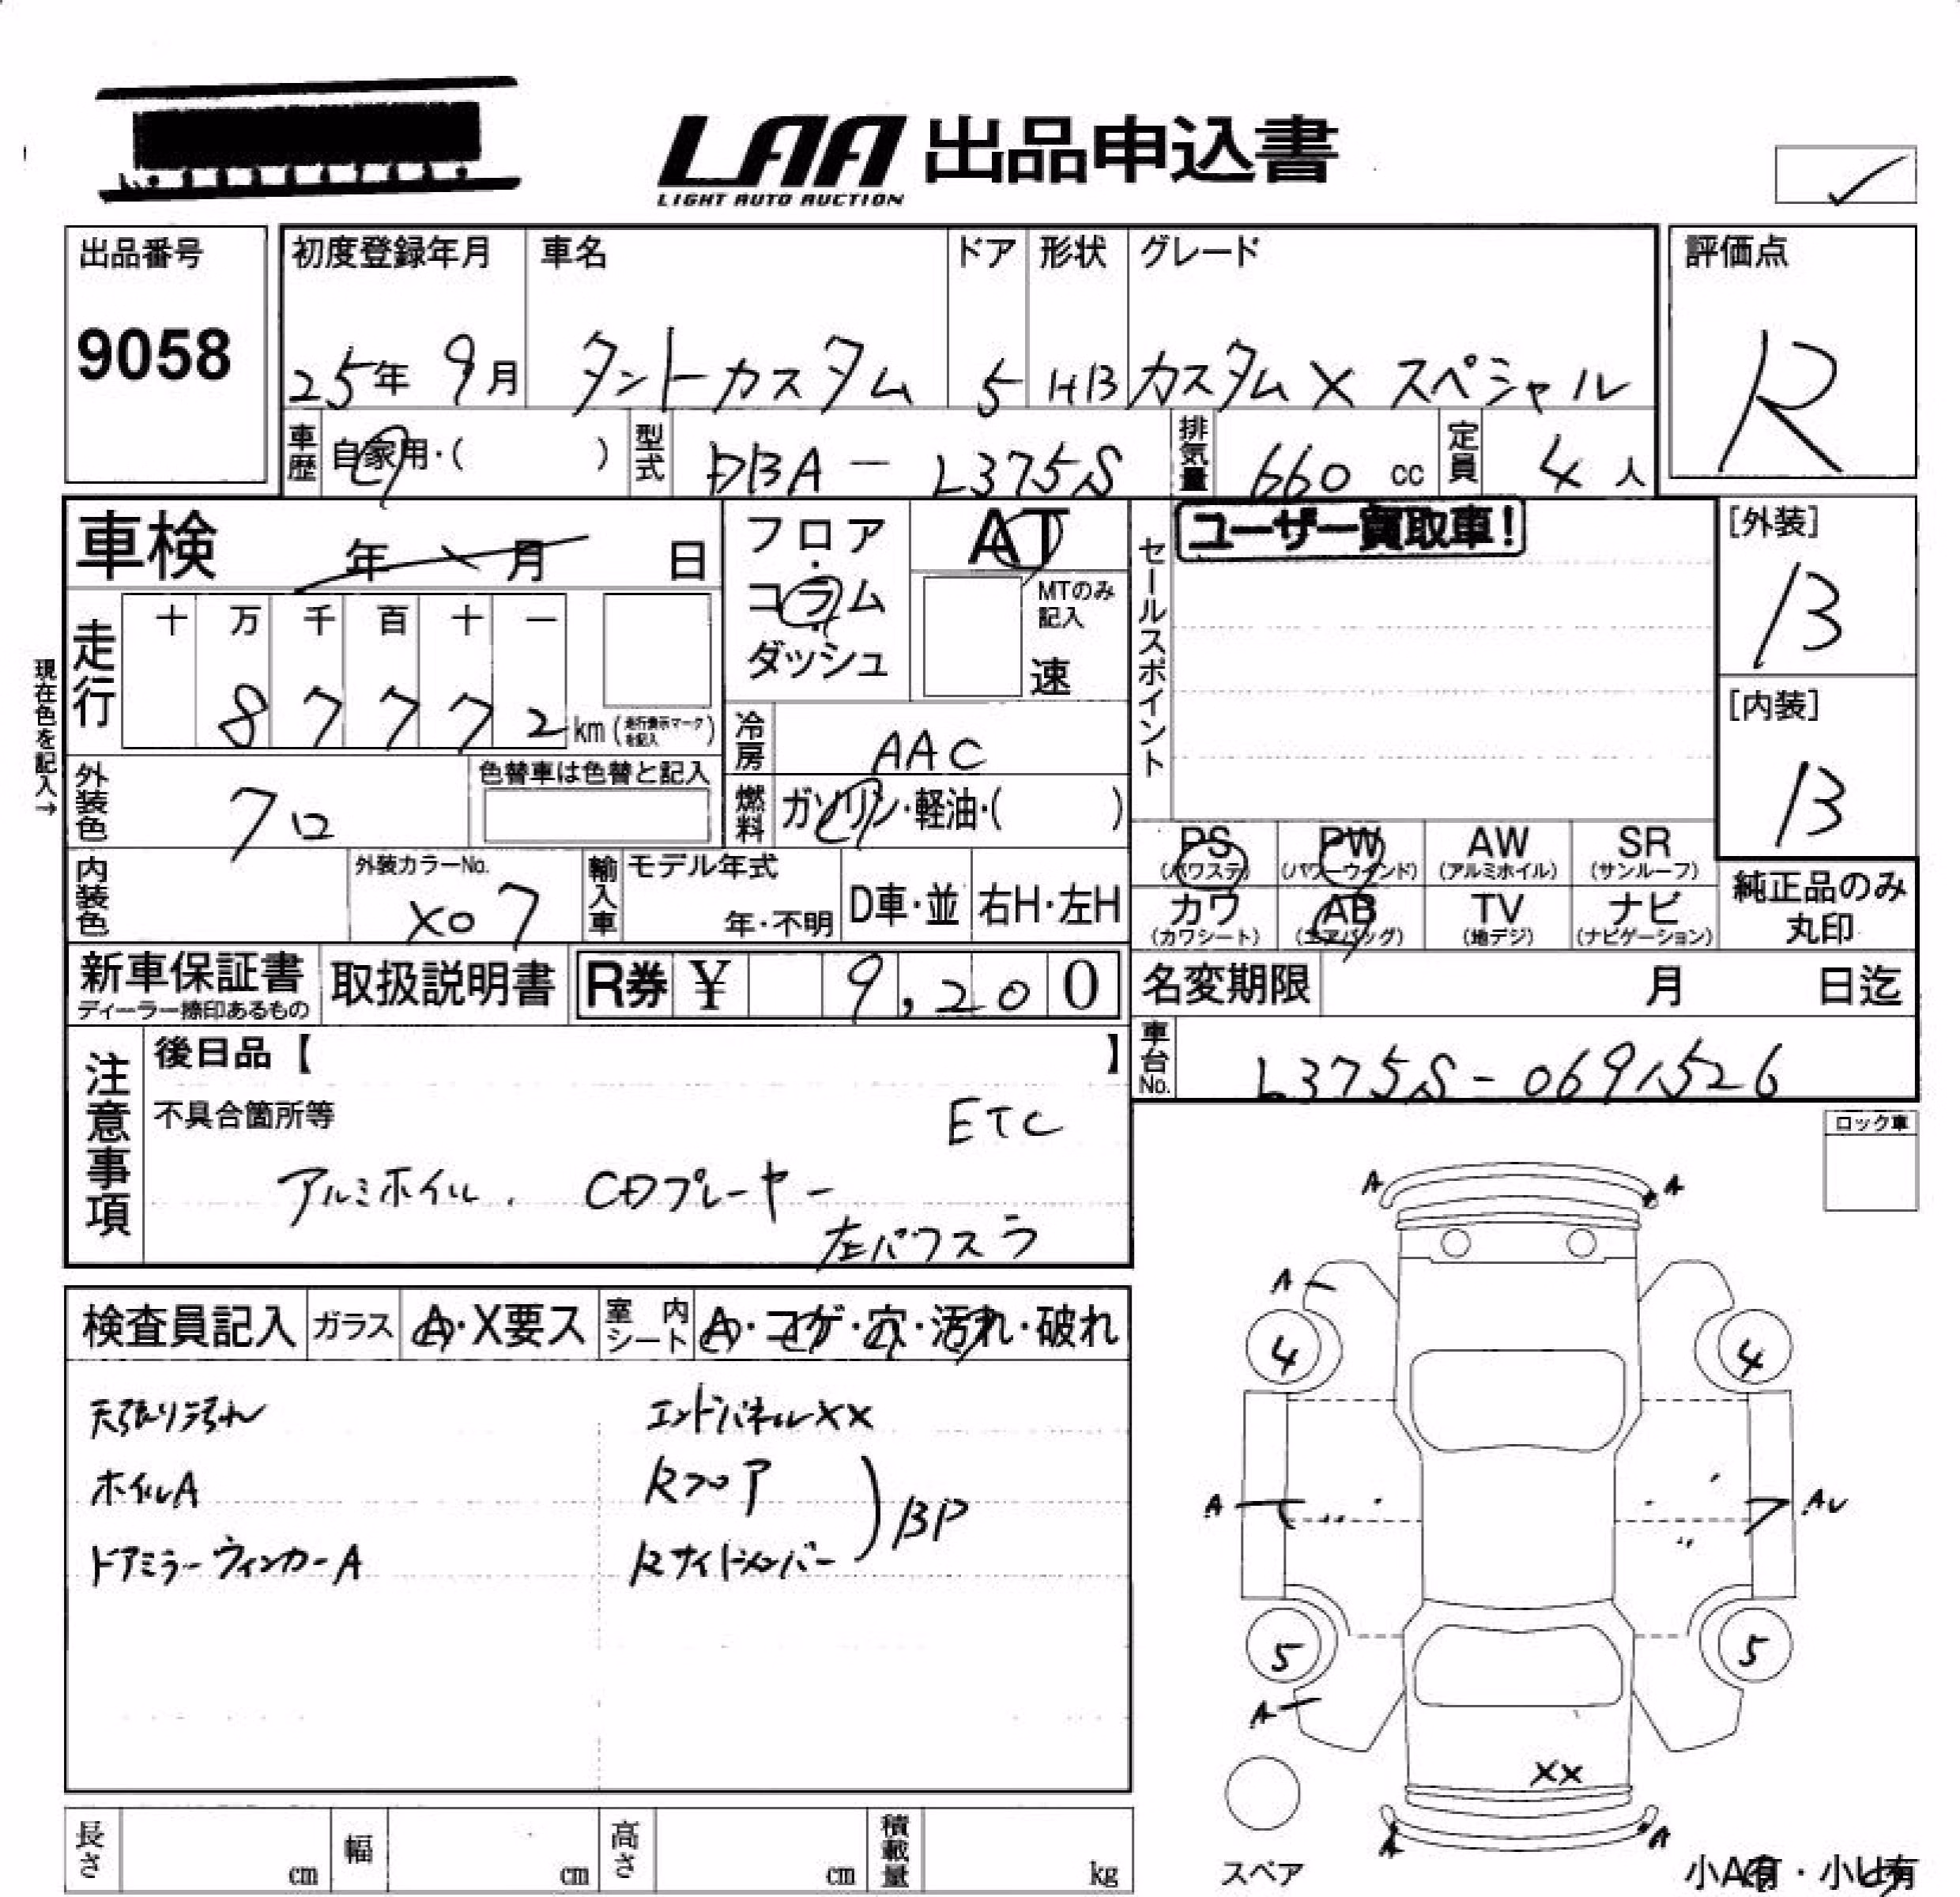 LAA 出品申込書
LIGHT AUTO AUCTION
出品番号
9058
初度登録年月
25年 9月
車名
タントカスタム
ドア
5
形状
HB
グレード
カスタムX スペシャル
評価点
R
車歴
自家用・( )
型式
DBA - L375S
排気量
660 cc
定員
4 人
車検 年 月 日
フロア・コラム・ダッシュ
AT
MTのみ記入
速
セールスポイント
ユーザー買取車!
[外装]
B
[内装]
B
現在色を記入→
走行
十 万 千 百 十 一
8 7 7 7 2 km (走行表示マークを記入)
冷房
AAC
外装色
クロ
色替車は色替と記入
燃料
ガソリン・軽油・( )
内装色
外装カラーNo.
X07
輸入車
モデル年式
年・不明
D車・並
右H・左H
PS (パワステ)
PW (パワーウインド)
AW (アルミホイル)
SR (サンルーフ)
カワ (カワシート)
AB (エアバッグ)
TV (地デジ)
ナビ (ナビゲーション)
純正品のみ丸印
新車保証書
ディーラー捺印あるもの
取扱説明書
R券 ¥ 9,200
名変期限 月 日迄
車台No.
L375S-0691526
注意事項
後日品【 】
不具合箇所等
ETC
アルミホイル. CDプレーヤー
左パワスラ
ロック車
検査員記入
ガラス
A・X要ス
室内シート
A・コゲ・穴・汚れ・破れ
天張り汚れ
エンドパネルXX
ホイルA
Rフロア
BP
ドアミラーウィンカーA
Rサイドメンバー
A A
A
4 4
A AU
5 5
A
XX
A A
スペア
小A有・小U有
長さ cm
幅 cm
高さ cm
積載量 kg